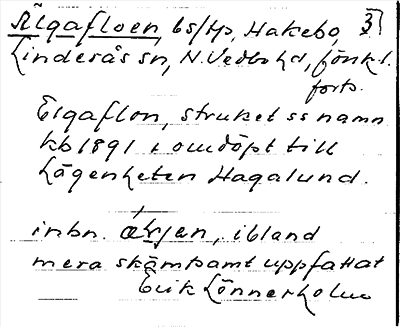 Älgafloen, bs/tp, Hakebo, 3]
Linderås sn, N. Vedbo hd, Jönk. l.
forts.
Elgaflon, struket ss namn
kb 1891 i omdöpt till
Lägenheten Hagalund.
inbn. ibland
mera skämtsamt uppfattat
Erik Lönnerholm